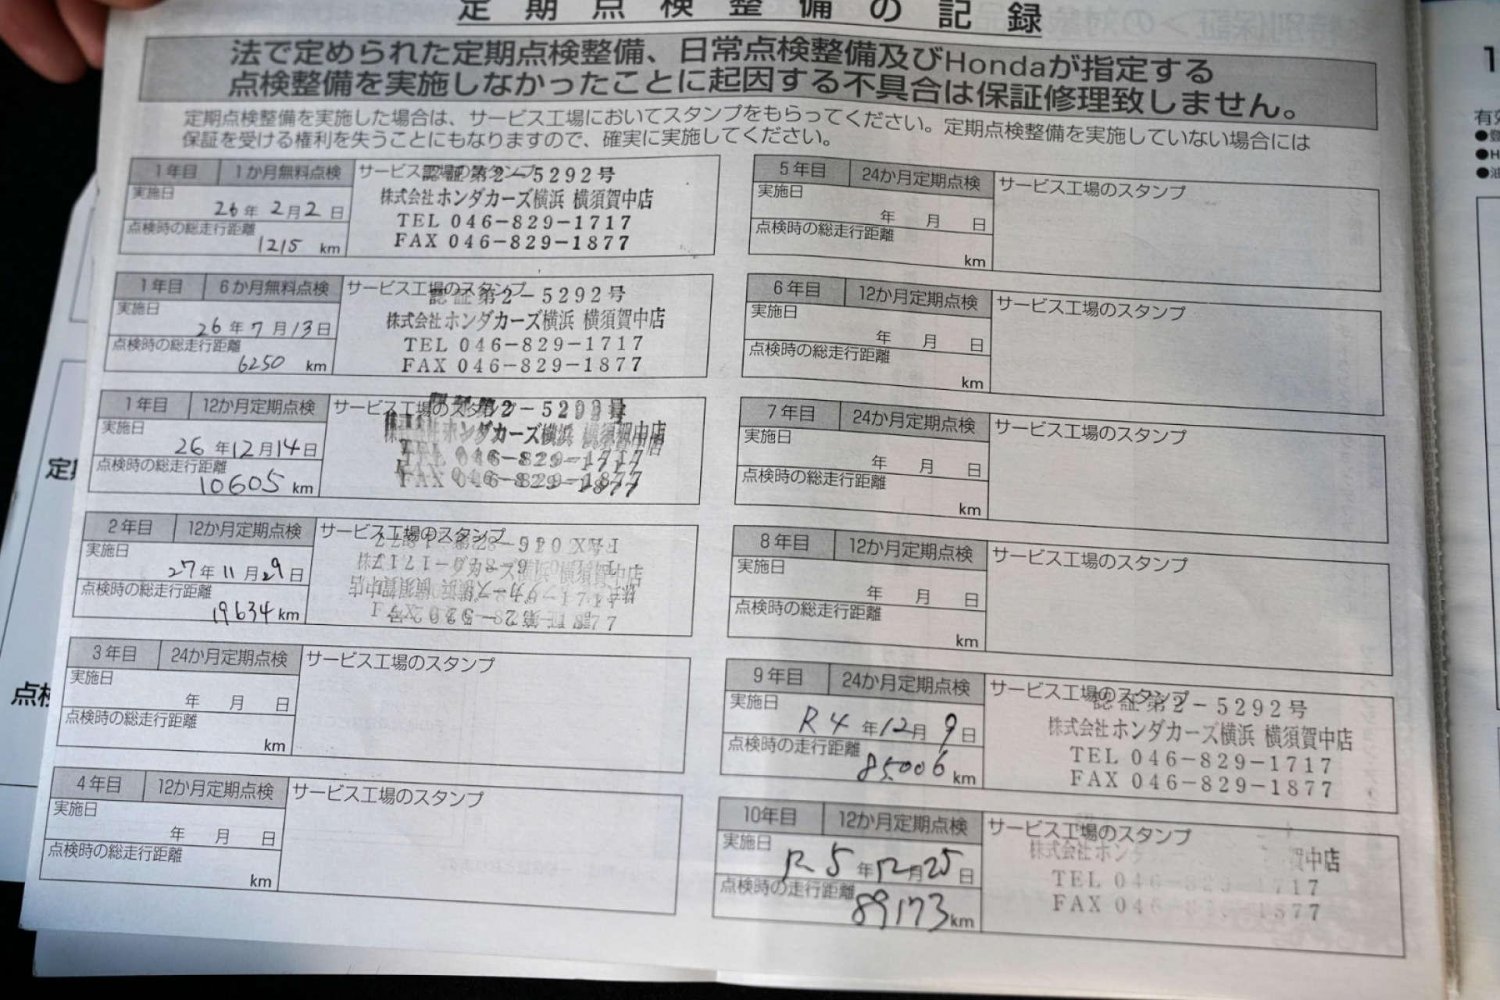 定期点検整備の記録
法で定められた定期点検整備、日常点検整備及びHondaが指定する
点検整備を実施しなかったことに起因する不具合は保証修理致しません。
定期点検整備を実施した場合は、サービス工場においてスタンプをもらってください。定期点検整備を実施していない場合には
保証を受ける権利を失うことにもなりますので、確実に実施してください。
1年目 1か月無料点検 サービス工場のスタンプ
認証第2-5292号
実施日
26年2月2日
株式会社ホンダカーズ横浜 横須賀中店
TEL 046-829-1717
点検時の総走行距離
1215 km
FAX 046-829-1877
1年目 6か月無料点検 サービス工場のスタンプ
認証第2-5292号
実施日
26年7月13日
株式会社ホンダカーズ横浜 横須賀中店
TEL 046-829-1717
点検時の総走行距離
6250 km
FAX 046-829-1877
1年目 12か月定期点検 サービス工場のスタンプ
第2-5292号
実施日
26年12月14日
株式会社ホンダカーズ横浜 横須賀中店
TEL 046-829-1717
点検時の総走行距離
10605 km
FAX 046-829-1877
2年目 12か月定期点検 サービス工場のスタンプ
実施日
27年11月29日
点検時の総走行距離
19634 km
3年目 24か月定期点検 サービス工場のスタンプ
実施日
年 月 日
点検時の総走行距離
km
4年目 12か月定期点検 サービス工場のスタンプ
実施日
年 月 日
点検時の総走行距離
km
5年目 24か月定期点検 サービス工場のスタンプ
実施日
年 月 日
点検時の総走行距離
km
6年目 12か月定期点検 サービス工場のスタンプ
実施日
年 月 日
点検時の総走行距離
km
7年目 24か月定期点検 サービス工場のスタンプ
実施日
年 月 日
点検時の総走行距離
km
8年目 12か月定期点検 サービス工場のスタンプ
実施日
年 月 日
点検時の総走行距離
km
9年目 24か月定期点検 サービス工場のスタンプ
認証第2-5292号
実施日
R4年12月9日
株式会社ホンダカーズ横浜 横須賀中店
TEL 046-829-1717
点検時の走行距離
85006 km
FAX 046-829-1877
10年目 12か月定期点検 サービス工場のスタンプ
実施日
R5年12月25日
株式会社ホン 賀中店
TEL 046-829-1717
点検時の走行距離
89173 km
FAX 046-829-1877